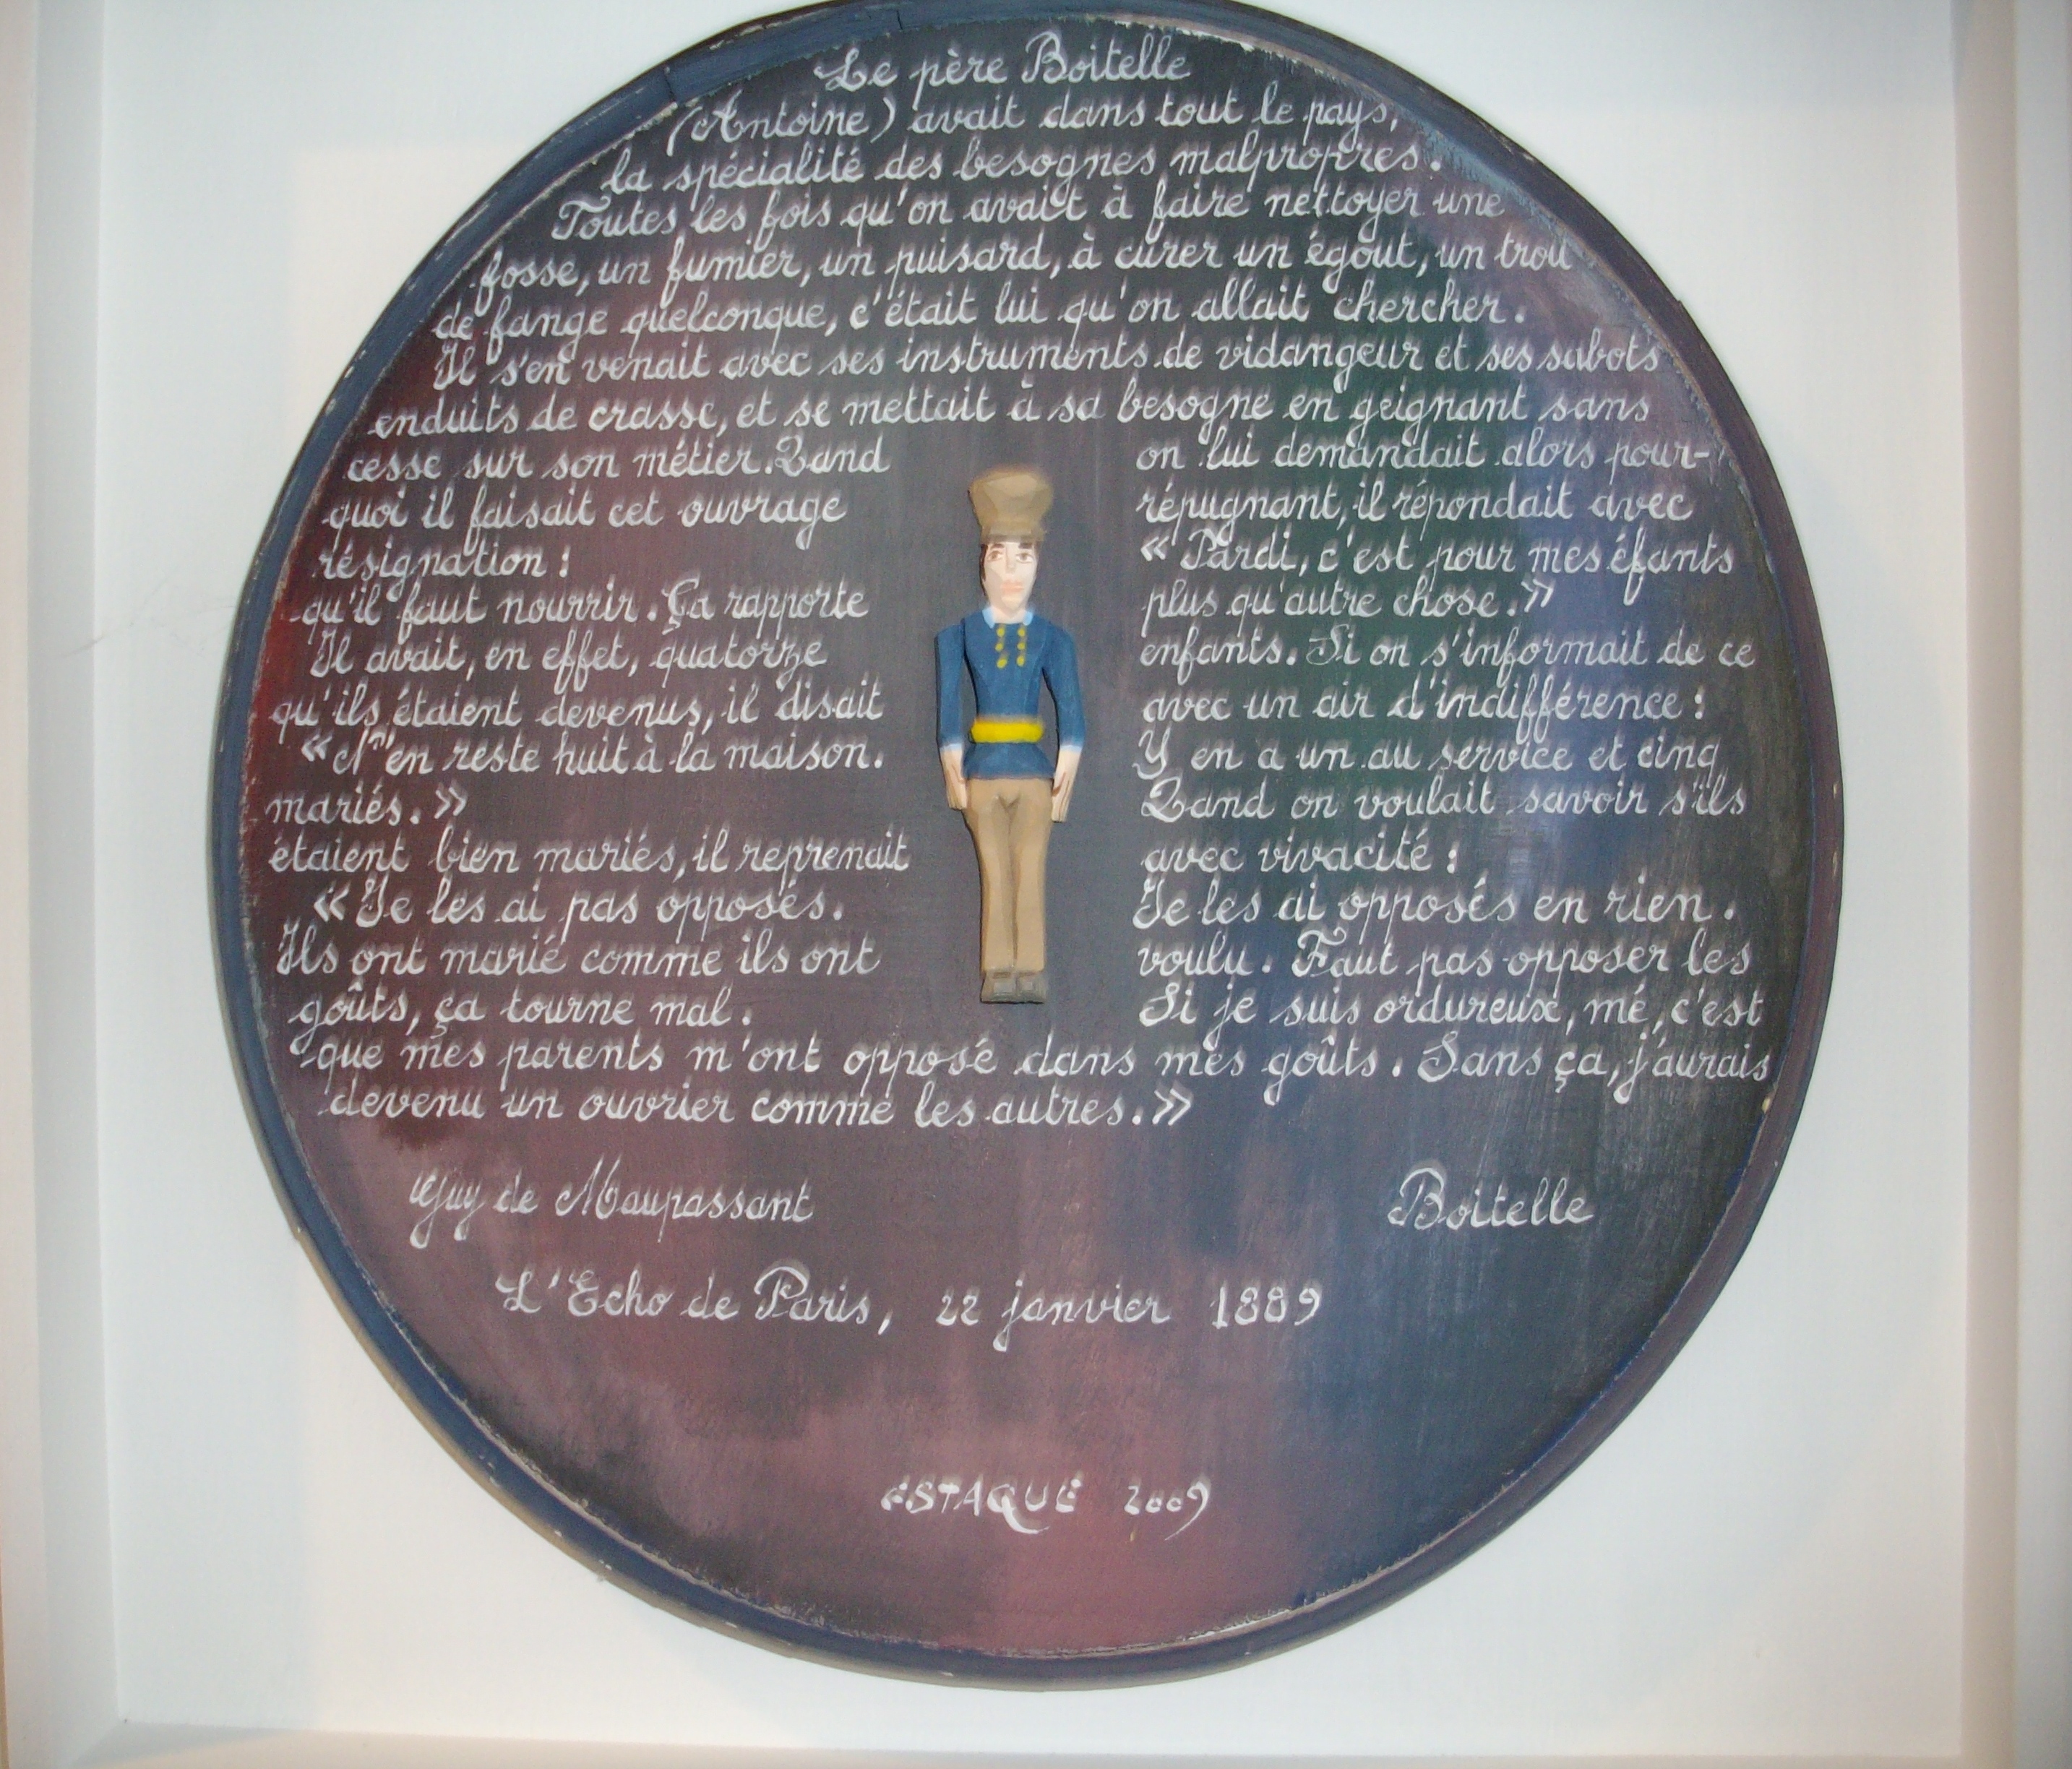 Le père Boitelle
(Antoine) avait dans tout le pays,
la spécialité des besognes malpropres.
Toutes les fois qu'on avait à faire nettoyer une
fosse, un fumier, un puisard, à curer un égout, un trou
de fange quelconque, c'était lui qu'on allait chercher.
Il s'en venait avec ses instruments de vidangeur et ses sabots
enduits de crasse, et se mettait à sa besogne en geignant sans
cesse sur son métier. Quand on lui demandait alors pour-
quoi il faisait cet ouvrage répugnant, il répondait avec
résignation : « Pardi, c'est pour mes éfants
qu'il faut nourrir. Ça rapporte plus qu'autre chose. »
Il avait, en effet, quatorze enfants. Si on s'informait de ce
qu'ils étaient devenus, il disait avec un air d'indifférence :
« N'en reste huit à la maison. Y en a un au service et cinq
mariés. » Quand on voulait savoir s'ils
étaient bien mariés, il reprenait avec vivacité :
« Je les ai pas opposés. Je les ai opposés en rien.
Ils ont marié comme ils ont voulu. Faut pas opposer les
goûts, ça tourne mal. Si je suis ordureux, mé, c'est
que mes parents m'ont opposé dans mes goûts. Sans ça, j'aurais
devenu un ouvrier comme les autres. »
Guy de Maupassant Boitelle
L'Echo de Paris, 22 janvier 1889
ESTAQUE 2009